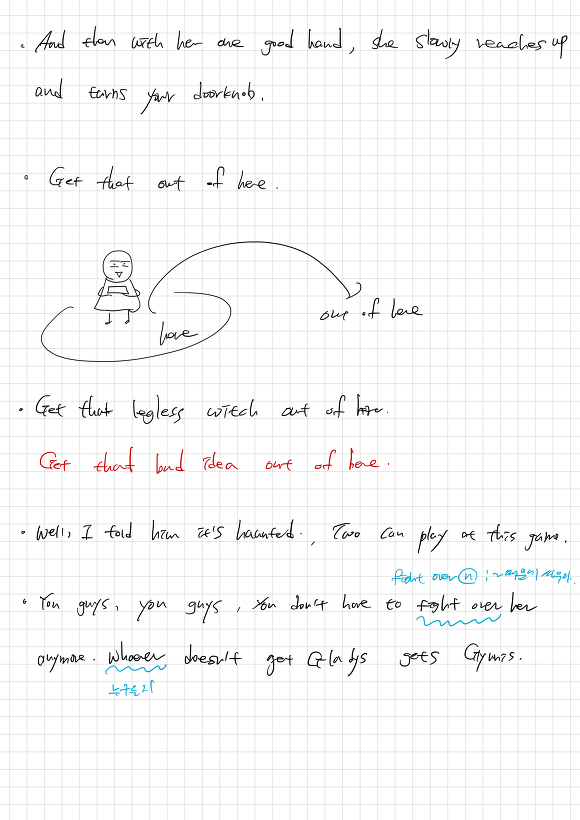 · And then with her one good hand, she slowly reaches up
and turns your doorknob.
· Get that out of here.
here
out of here
· Get that legless witch out of here.
Get that bad idea out of here.
· Well, I told him it's haunted., Two can play at this game.
fight over ⓝ : ~때문에 싸우다.
· You guys, you guys, you don't have to fight over her
anymore. Whoever doesn't get Gladys gets Glynnis.